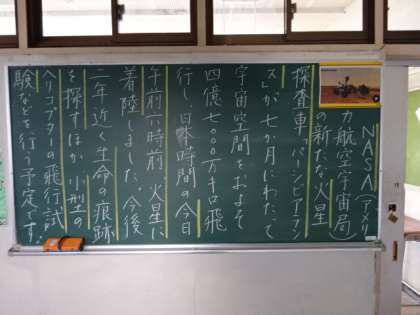 NASA(アメリ
カ航空宇宙局)
の新たな火星
探査車「パーシビアラン
ス」が七か月にわたって
宇宙空間をおよそ
四億七〇〇〇万キロ飛
行し、日本時間の今日
午前六時前、火星に
着陸しました。今後
二年近く生命の痕跡
を探すほか、小型の
ヘリコプターの飛行試
験などを行う予定です。